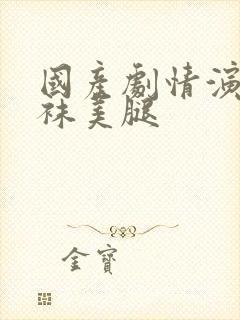 國產劇情演
袜美腿
金寶